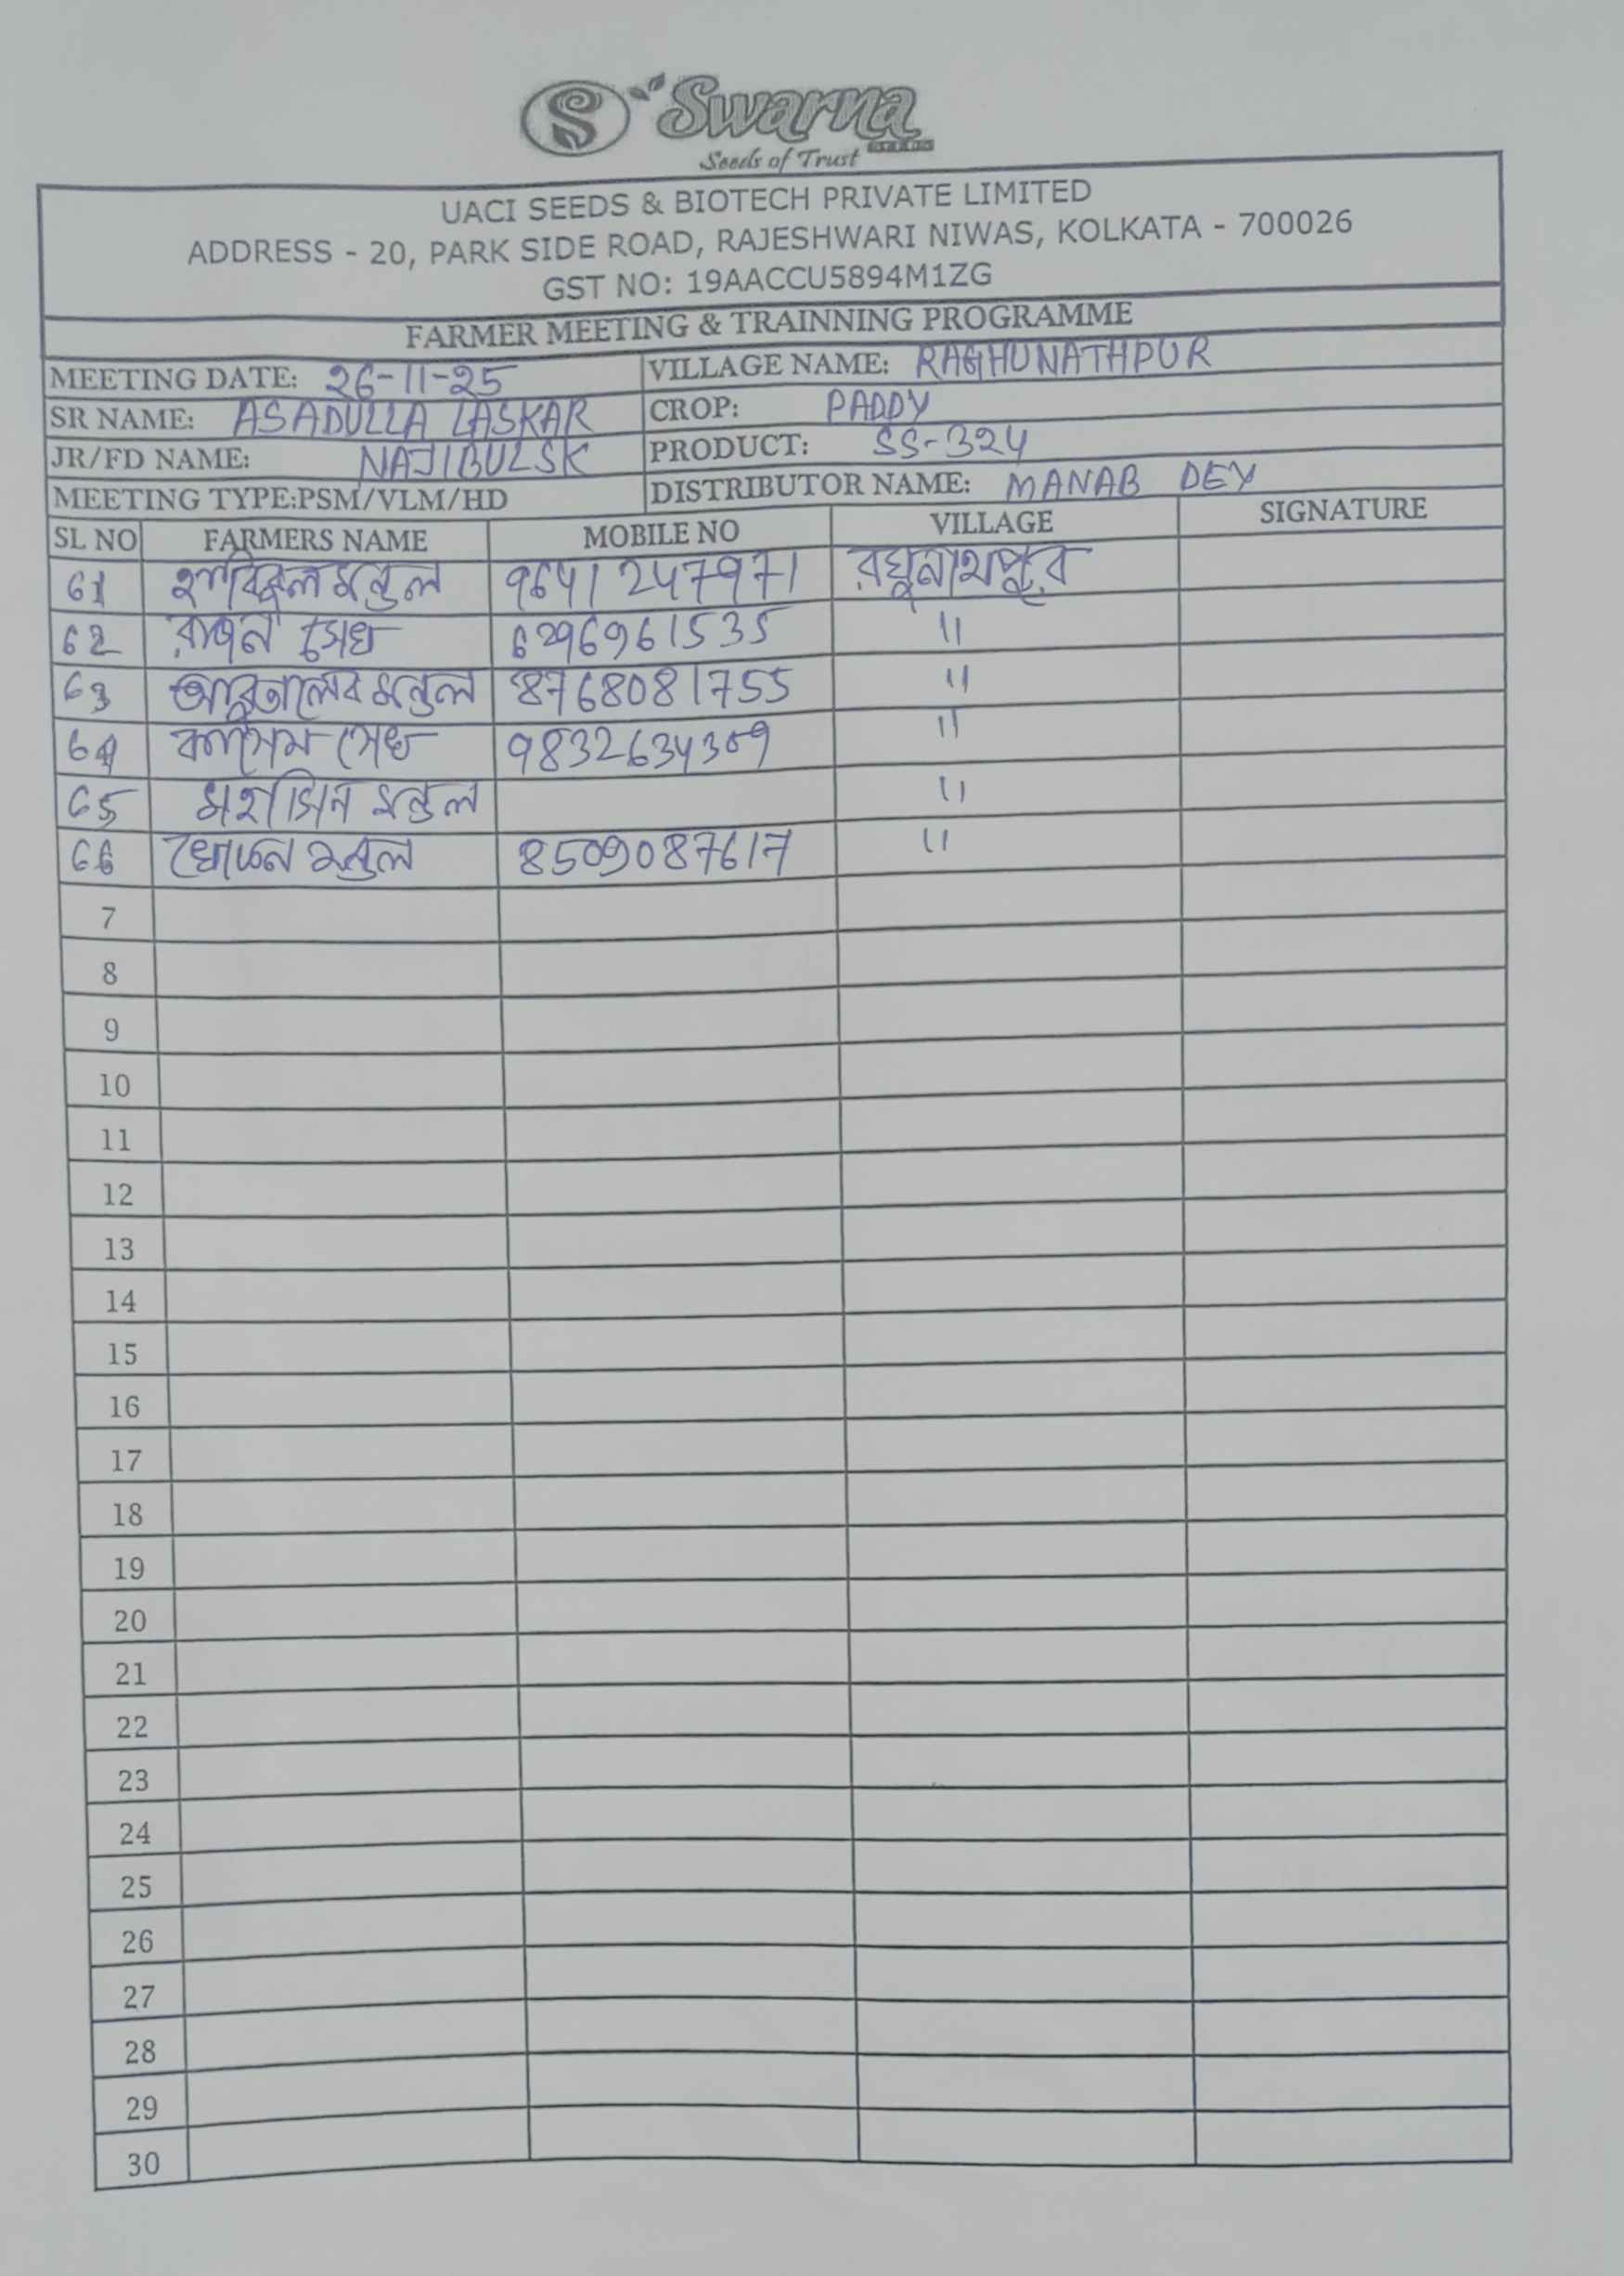 S Swarna
Seeds of Trust
UACI SEEDS & BIOTECH PRIVATE LIMITED
ADDRESS - 20, PARK SIDE ROAD, RAJESHWARI NIWAS, KOLKATA - 700026
GST NO: 19AACCU5894M1ZG
FARMER MEETING & TRAINNING PROGRAMME
MEETING DATE: 26-11-25 VILLAGE NAME: RAGHUNATHPUR
SR NAME: ASADULLA LASKAR CROP: PADDY
JR/FD NAME: NAJIBUL SK PRODUCT: SS-324
MEETING TYPE:PSM/VLM/HD DISTRIBUTOR NAME: MANAB DEY
SL NO FARMERS NAME MOBILE NO VILLAGE SIGNATURE
61 মন্ডল 9641247971 রঘুনাথপুর
62 সেখ 6296961535 "
63 আবুতালেব মন্ডল 8768081755 "
64 কাসেম সেখ 9832634309 "
65 মহাসিন মন্ডল "
66 মন্ডল 8509087617 "
7
8
9
10
11
12
13
14
15
16
17
18
19
20
21
22
23
24
25
26
27
28
29
30